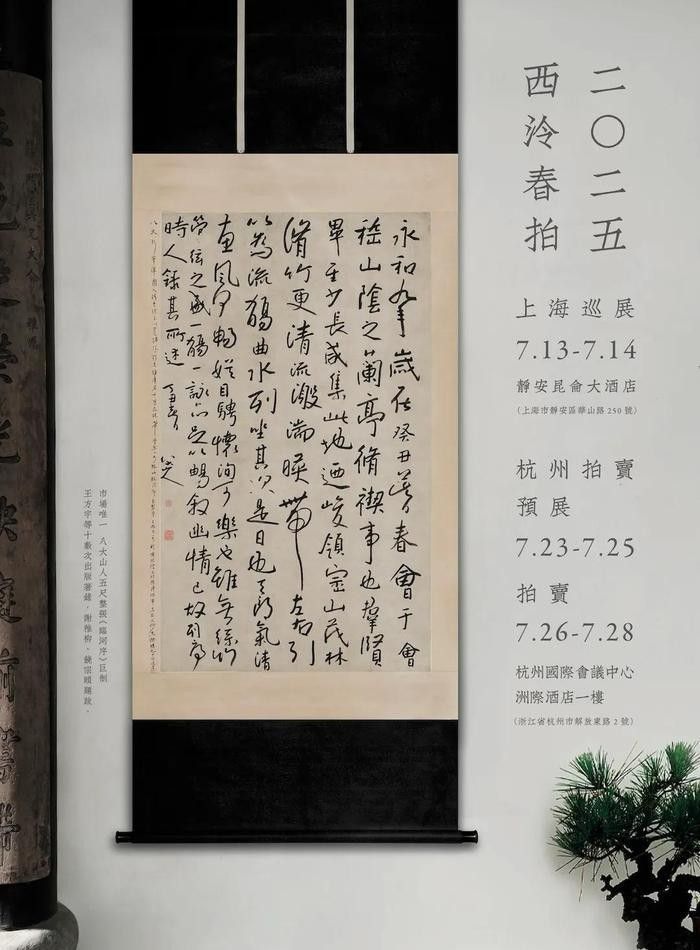 二〇二五
西泠春拍
上海巡展
7.13-7.14
靜安昆侖大酒店
(上海市靜安區華山路 250 號)
杭州拍賣
預展
7.23-7.25
拍賣
7.26-7.28
杭州國際會議中心
洲際酒店一樓
(浙江省杭州市解放東路 2 號)
永和九年歲在癸丑暮春會于會
稽山陰之蘭亭脩禊事也羣賢
畢至少長咸集此地迺峻領崇山茂林
脩竹更清流激湍暎帶左右引
以為流觴曲水列坐其次是日也天朗氣清
惠風和暢娛目騁懷洵可樂也雖無絲竹
管絃之盛一觴一詠亦足以暢敘幽情已故列序
時人錄其所述 丁丑春 八大山人
市場唯一 八大山人五尺整張《臨河序》巨制
王方宇等十數次出版著錄，謝稚柳、饒宗頤題跋。